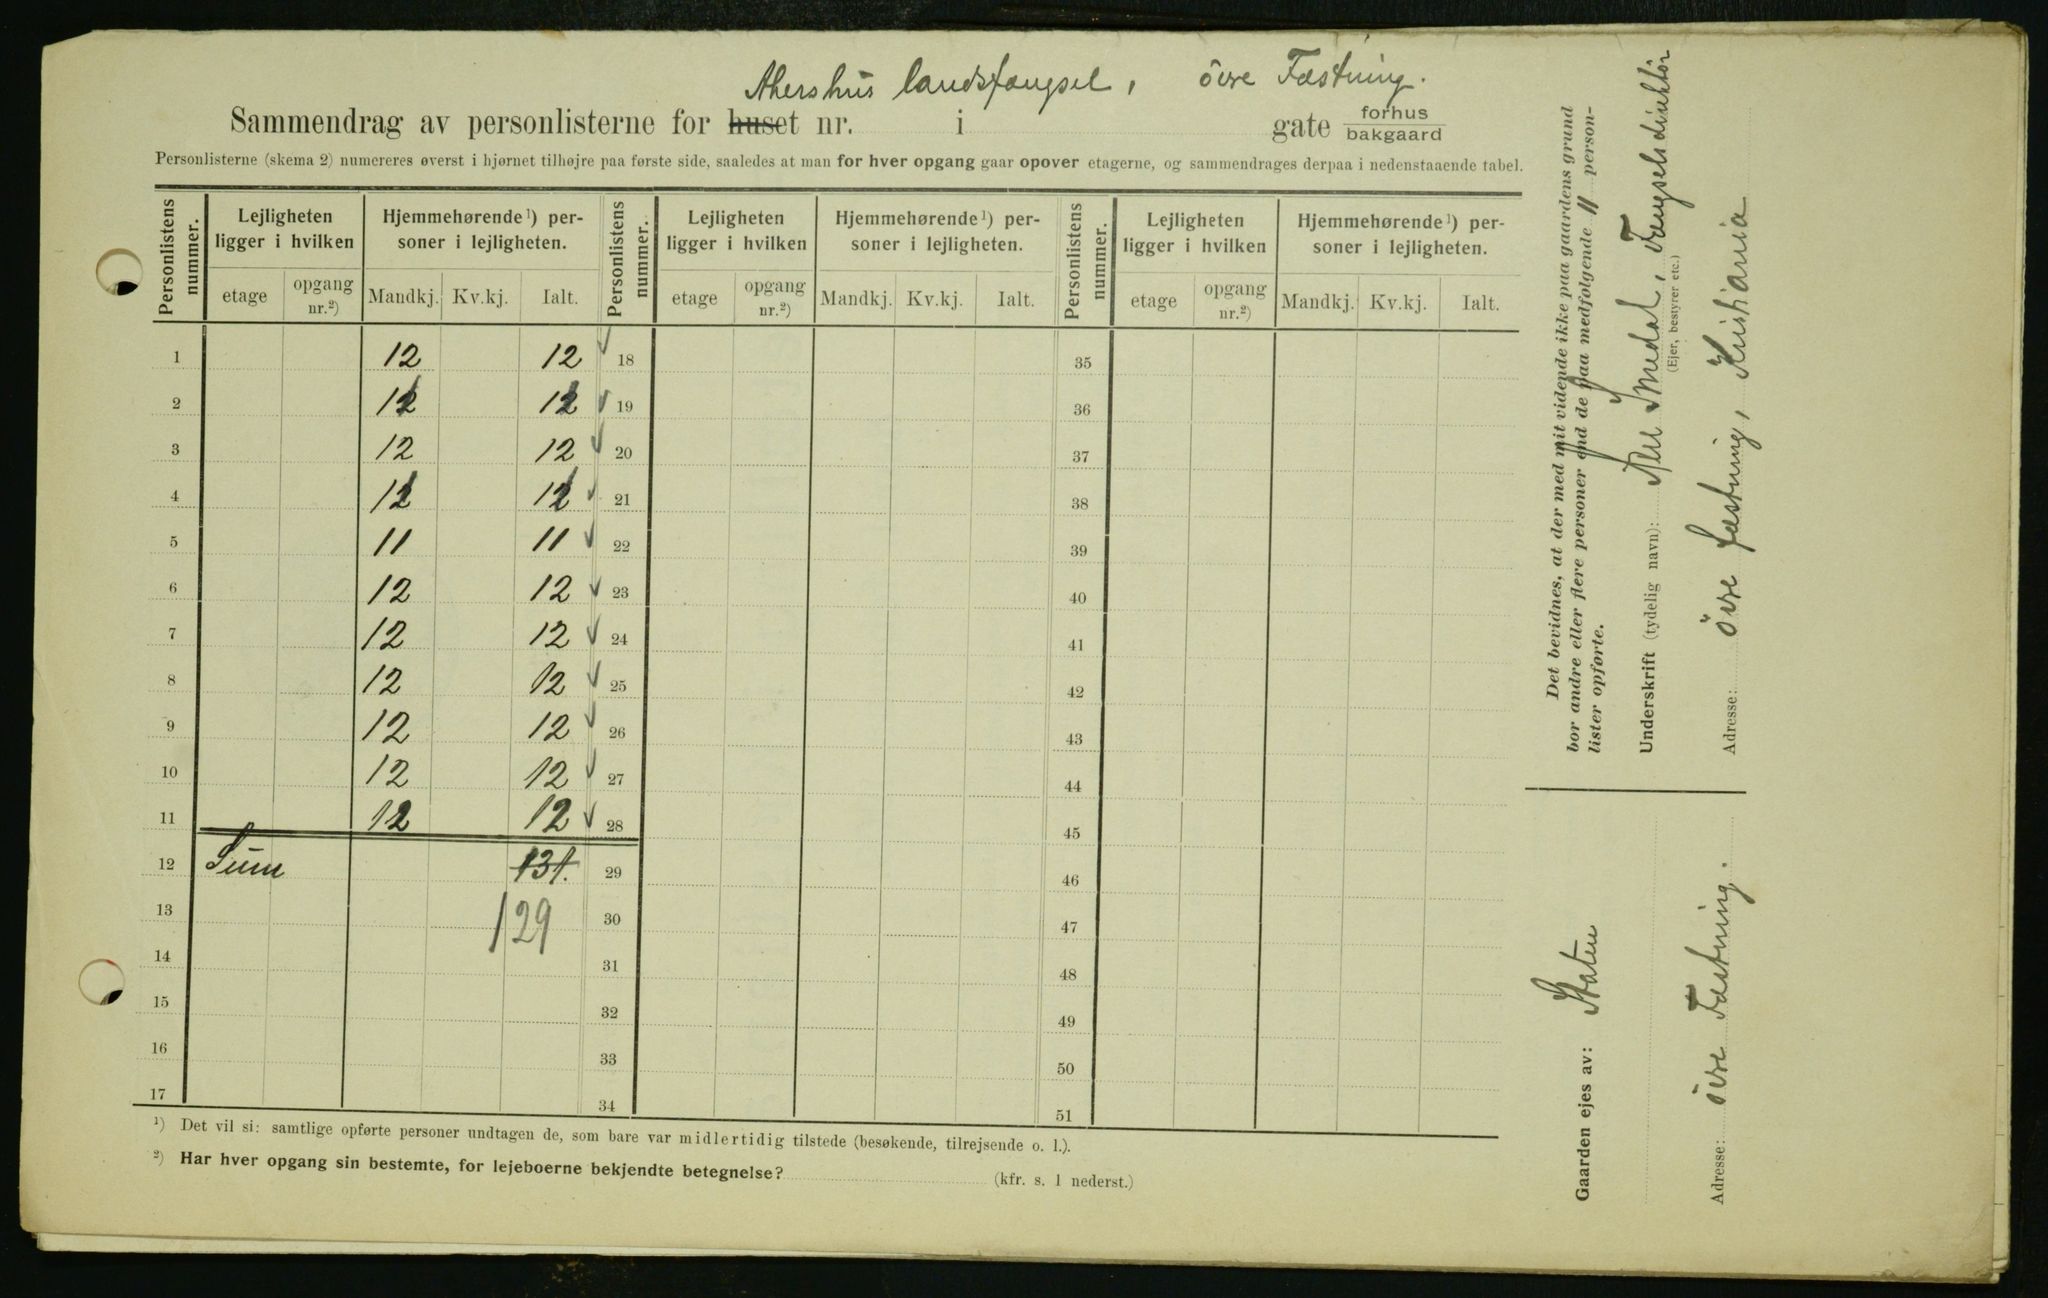 Akershus landsfængsel, övre Fæstning.
Sammendrag av personlisterne for huset nr. i gate forhus bakgaard
Personlisterne (skema 2) numereres øverst i hjørnet tilhøjre paa første side, saaledes at man for hver opgang gaar opover etagerne, og sammendrages derpaa i nedenstaaende tabel.
Personlistens nummer. Lejligheten ligger i hvilken Hjemmehørende ¹) personer i lejligheten. Personlistens nummer. Lejligheten ligger i hvilken Hjemmehørende ¹) personer i lejligheten. Personlistens nummer. Lejligheten ligger i hvilken Hjemmehørende ¹) personer i lejligheten.
etage opgang nr.²) Mandkj. Kv.kj. Ialt. etage opgang nr.²) Mandkj. Kv.kj. Ialt. etage opgang nr.²) Mandkj. Kv.kj. Ialt.
1 12 12 18 35
2 11 11 19 36
3 12 12 20 37
4 11 11 21 38
5 11 11 22 39
6 12 12 23 40
7 12 12 24 41
8 12 12 25 42
9 12 12 26 43
10 12 12 27 44
11 12 12 28 45
12 Sum 131. 29 46
13 129 30 47
14 31 48
15 32 49
16 33 50
17 34 51
¹) Det vil si: samtlige opførte personer undtagen de, som bare var midlertidig tilstede (besøkende, tilrejsende o. l.).
²) Har hver opgang sin bestemte, for lejeboerne bekjendte betegnelse? (kfr. s. 1 nederst.)
Det bevidnes, at der med mit vidende ikke paa gaardens grund
bor andre eller flere personer end de paa medfølgende 11 person-
lister opførte.
Underskrift (tydelig navn): Imedal, Fængselsdirektör
(Ejer, bestyrer etc.)
Adresse: övre fæstning, Kristiania
Gaarden ejes av: Staten
Adresse: övre Fæstning.